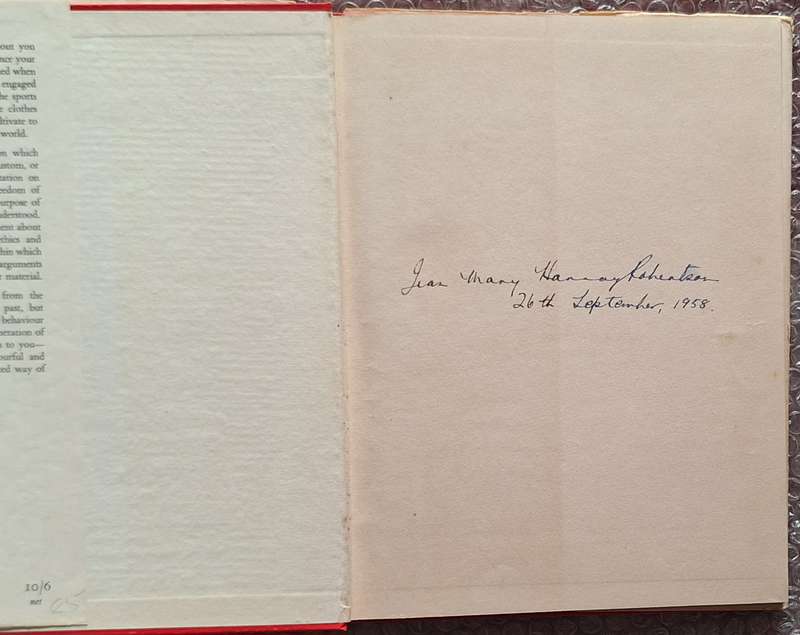 out you
nce your
ed when
engaged
he sports
e clothes
ltivate to
world.
on which
ustom, or
tation on
eedom of
urpose of
derstood.
em about
ethics and
thin which
arguments
r material.
from the
past, but
behaviour
neration of
n to you—
ourful and
ted way of
10/6
net
25
Jean Mary Hannay Robertson
26th September, 1958.